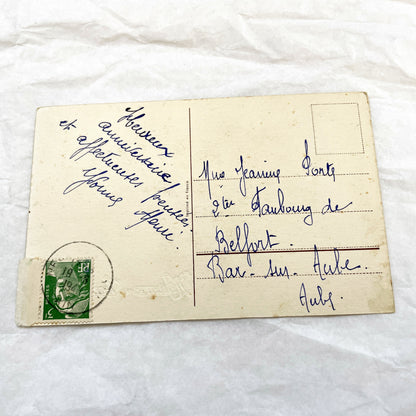 Heureux
anniversaire
et affectueuses pensées,
Yvonne Henri
Mme Jeanine Ponts
2 ter Faubourg de
Belfort.
Bar-sur-Aube
Aube.
RF